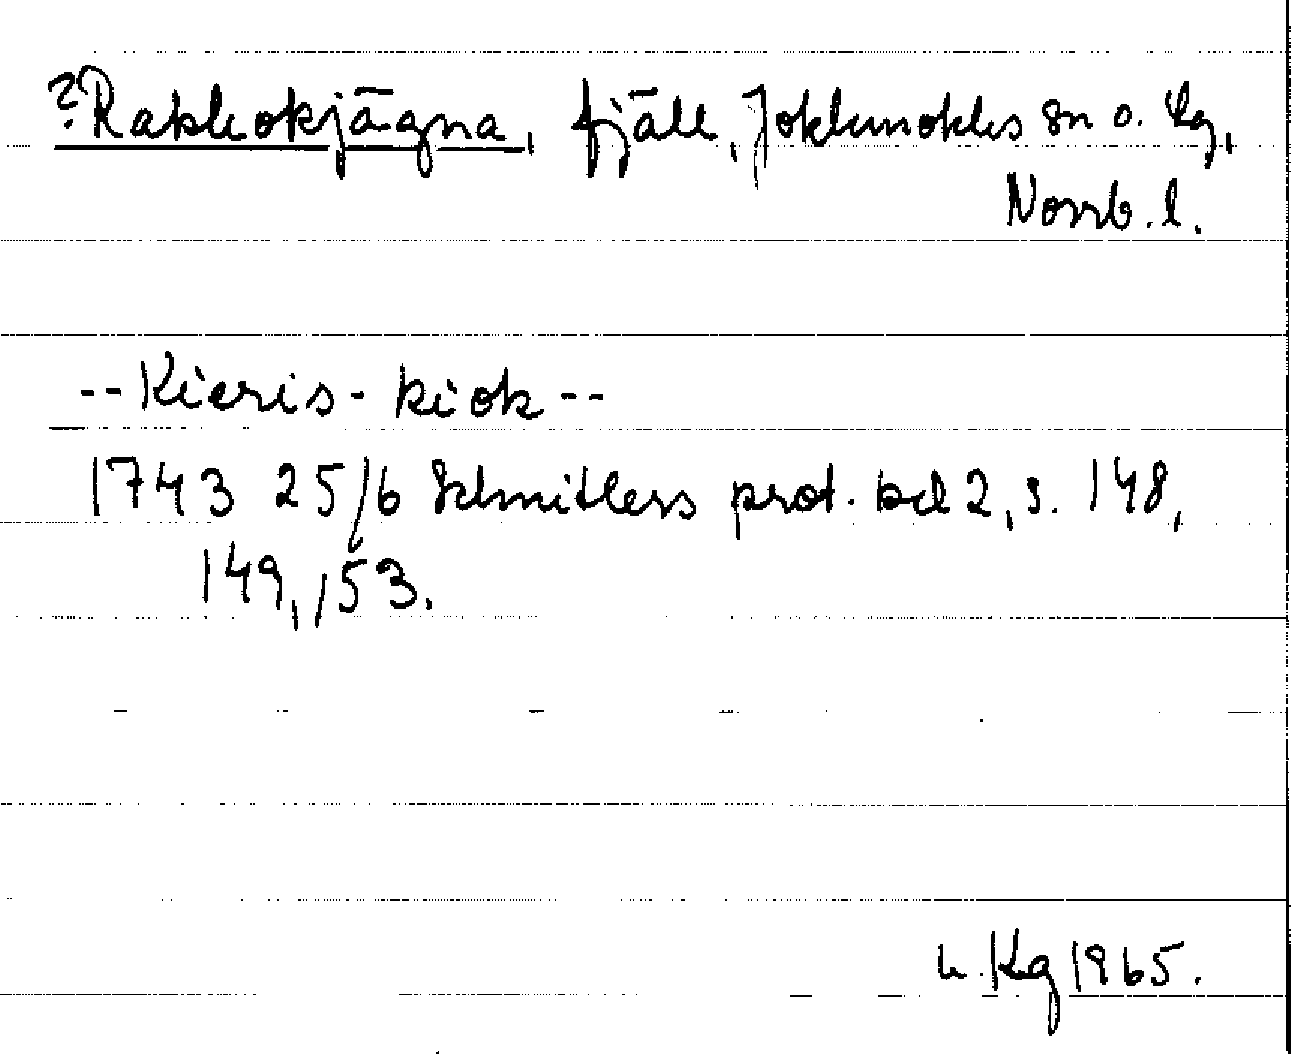 ?Rakkokjägna, fjäll, Jokkmokks sn o. lg,
Norrb. l.
--Kieris-kiok--
1743 25/6 Schnitlers prot. bd 2, s. 148,
149, 153.
Kg 1965.